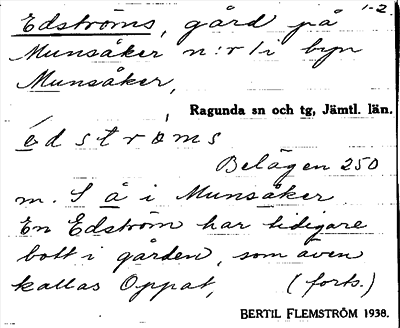 1-2.
Edströms, gård på
Munsåker n:r 1 i byn
Munsåker,
Ragunda sn och tg, Jämtl. län.
édstròms
Belägen 250
m. S å i Munsåker
En Edström har tidigare
bott i gården, som även
kallas Oppat, (forts.)
BERTIL FLEMSTRÖM 1938.